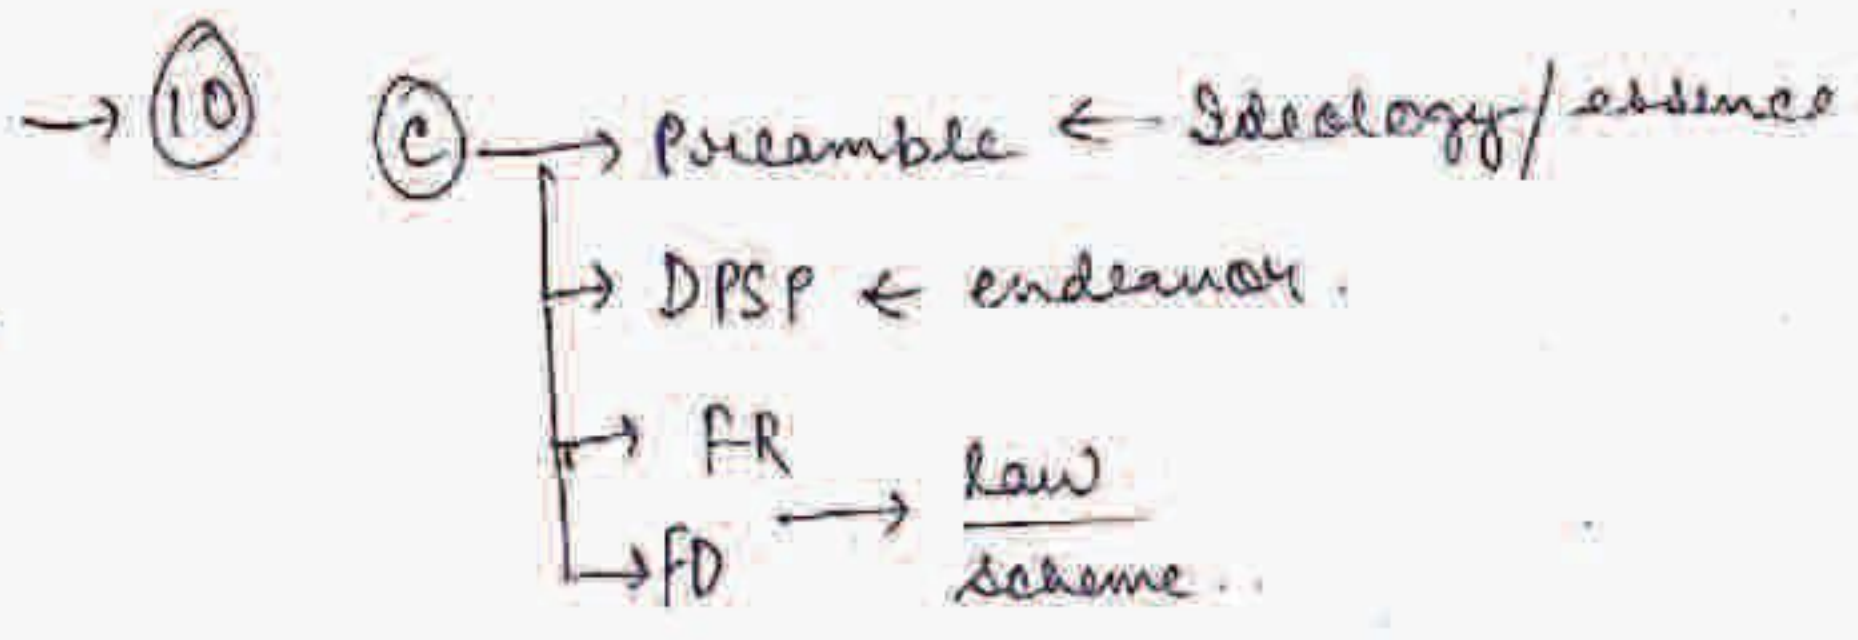 → 10 C → Preamble ← Ideology/essence
→ DPSP ← endeavor.
→ FR
→ Law
→ FD
scheme..